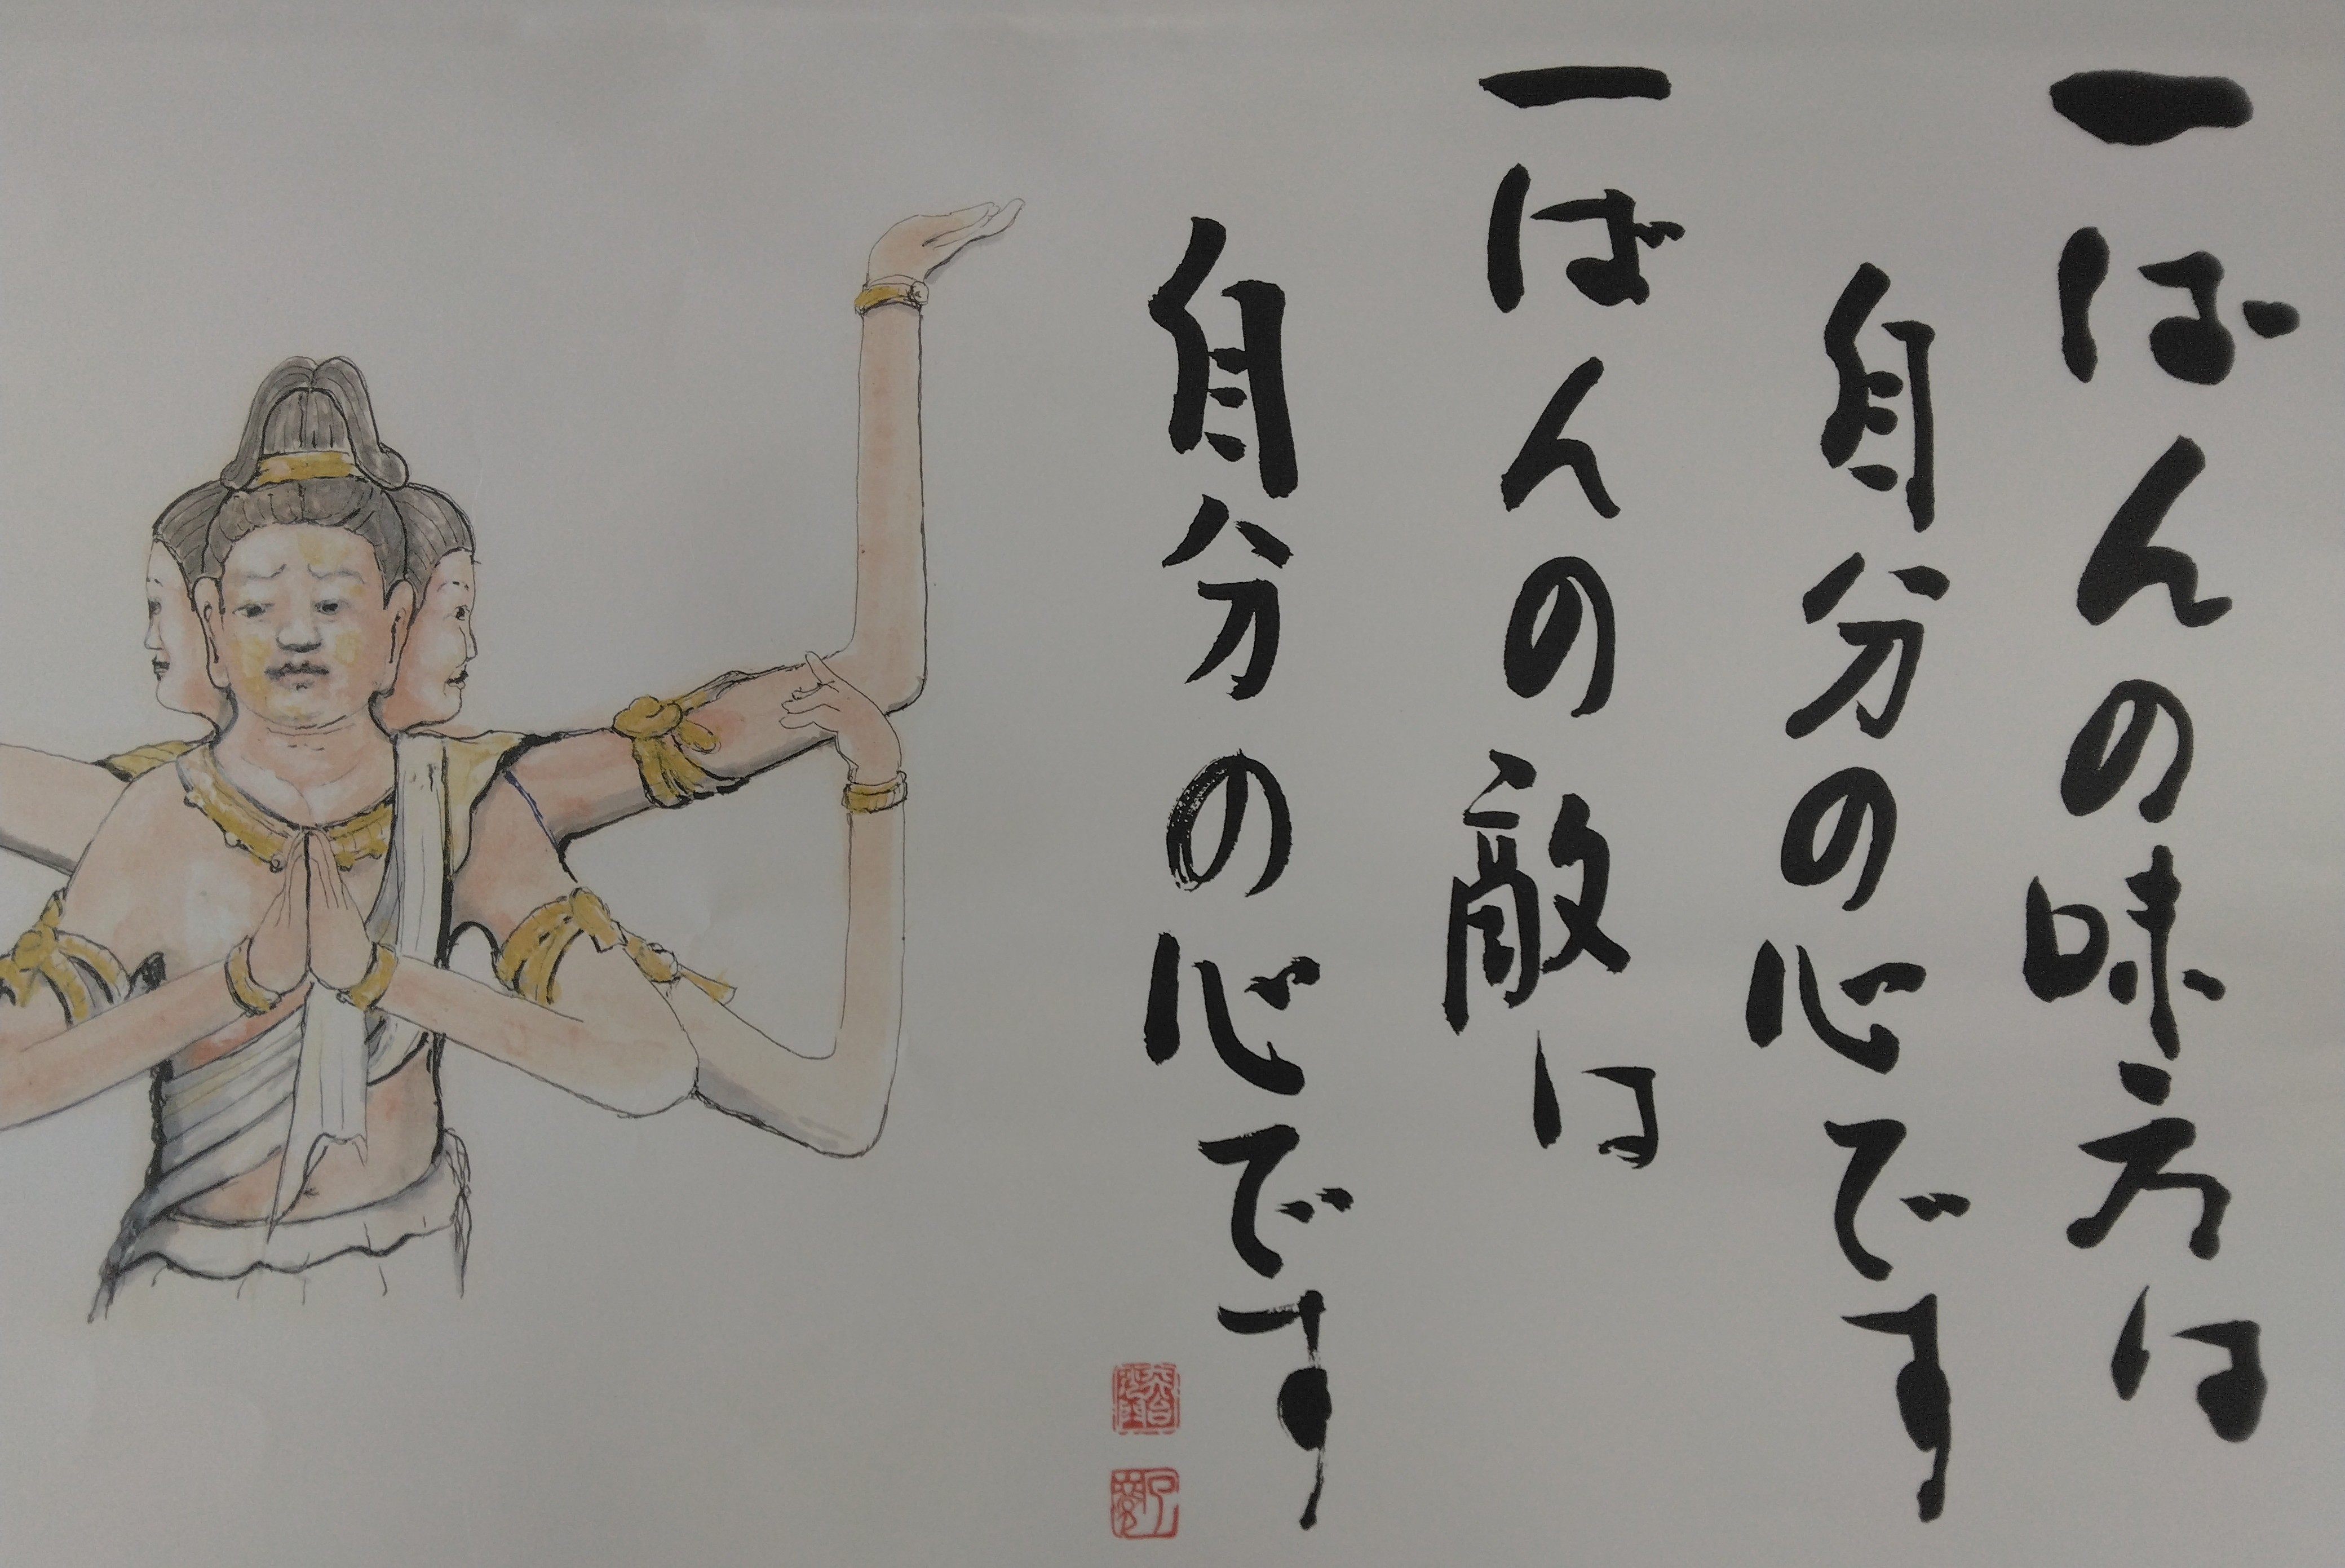 一ばんの味方は
自分の心です
一ばんの敵は
自分の心です